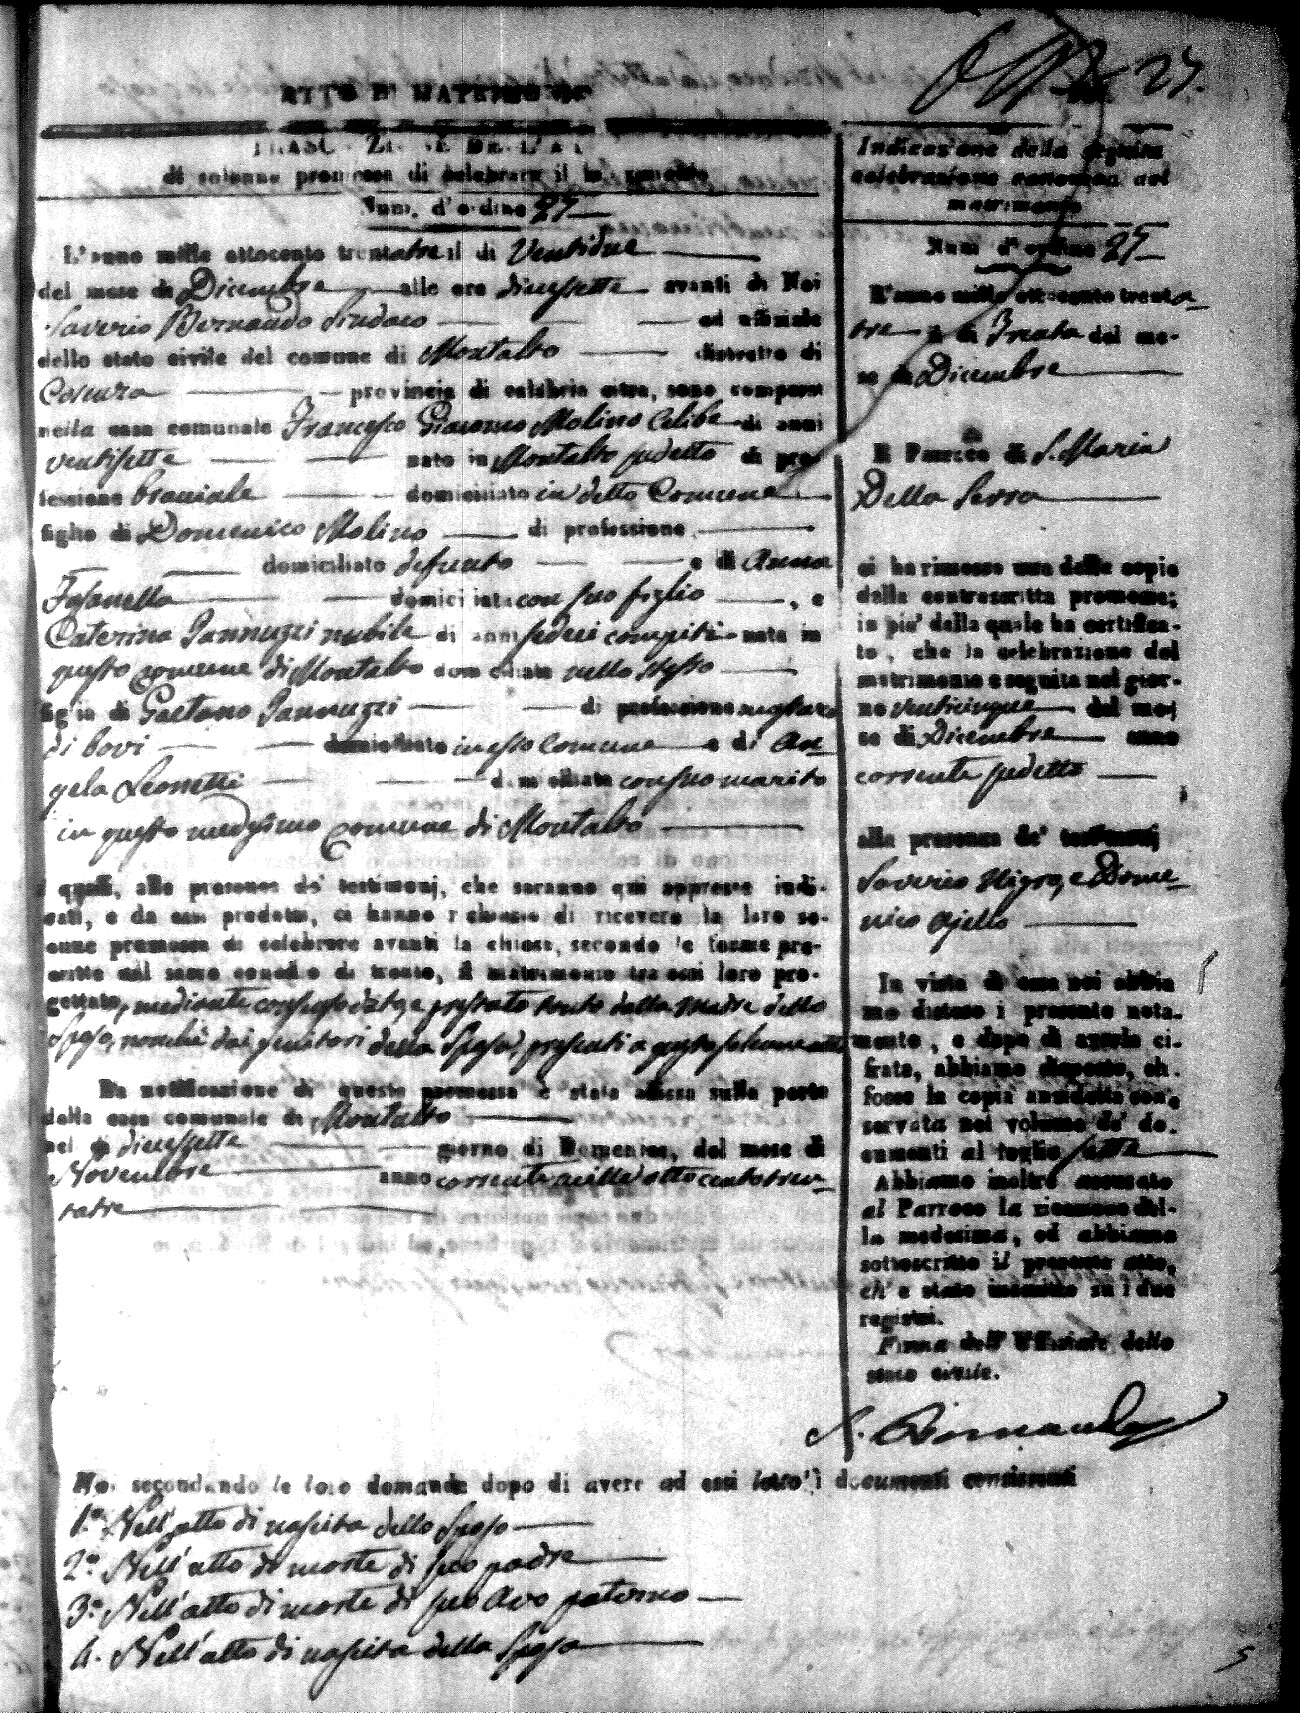 27.
ATTO DI MATRIMONIO
di solenne promessa di celebrare il matrimonio
Num. d'ordine 27
L'anno mille ottocento trentatre il di Ventidue
del mese di Dicembre alle ore diciessette avanti di Noi
Saverio Bernaudo Sindaco ed uffiziale
dello stato civile del comune di Montalto distretto di
Cosenza provincia di calabria citra, sono comparsi
nella casa comunale Francesco Giacomo Molino Celibe di anni
ventisette nato in Montalto sudetto di pro-
fessione braciale domiciliato in detto Comune
figlio di Domenico Molino di professione
domiciliato defunto e di Anna
Fasanella domiciliata con suo figlio, e
Caterina Iannuzzi nubile di anni sedeci compiti nata in
questo comune di Montalto domiciliata nello stesso
figlia di Gaetano Iannuzzi di professione
di bovi domiciliato in esso Comune e di An-
gela Leonetti domiciliata con suo marito
in questo medesimo Comune di Montalto
I quali, alla presenza de' testimonj, che saranno qui appresso indi-
cati, e da essi prodotti, ci hanno richiesto di ricevere la loro so-
lenne promessa di celebrare avanti la chiesa, secondo le forme pre-
scritte nal sacro concilio di trento, il matrimonio tra essi loro pro-
gettato, mediante consenso dato, e prestato tanto dalla Madre dello
Sposo, nonchè dai genitori della Sposa, presenti a questo solenne atto
La notificazione di questa promessa è stata affissa sulla porta
della casa comunale di Montalto
nel dì diciessette giorno di Domenica, del mese di
Novembre anno corrente mille ottocento tren-
tatre
Indicazione della seguita
celebrazione canonica del
matrimonio
Num d'ordine 27
L'anno mille ottocento trenta-
tre il di Trenta del me-
se di Dicembre
Il Parroco di S. Maria
Della Serra
ci ha rimesso una delle copie
della controscritta promessa;
in piè della quale ha certifica-
to, che la celebrazione del
matrimonio è seguita nel gior-
no venticinque del me-
se di Dicembre anno
corrente sudetto
alla presenza de' testimonj
Saverio Nigro, e Dome-
nico Ajello
In vista di essa noi abbia
mo disteso il presente nota-
mento, e dopo di averla ci-
frata, abbiamo disposto, ch.
fosse la copia anzidetta con-
servata nel volume de' do-
cumenti al foglio sette
Abbiamo inoltre accusato
al Parroco la ricezione del-
la medesima, ed abbiamo
sottoscritto il presente atto,
ch' è stato inscritto su i due
registri.
Firma dell' Uffiziale dello
stato civile.
S. Bernaudo
Noi secondando le loro domande dopo di avere ad essi letto i documenti consistenti
1.° Nell'atto di nascita dello Sposo
2.° Nell'atto di morte di suo padre
3.° Nell'atto di morte di suo Avo paterno
4. Nell'atto di nascita della Sposa